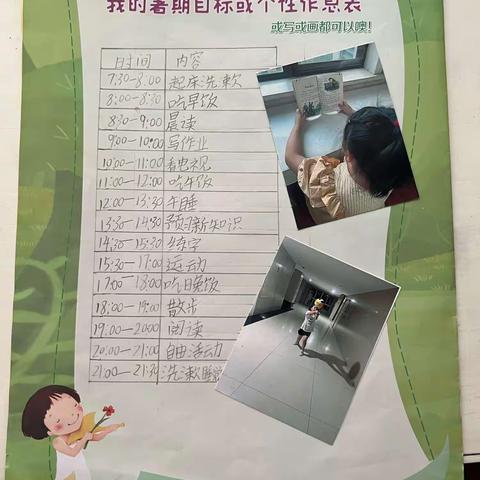 我的暑期目标或个性作息表
或写或画都可以噢！
时间 内容
7:30—8:00 起床洗漱
8:00—8:30 吃早饭
8:30—9:00 晨读
9:00—10:00 写作业
10:00—11:00 看电视
11:00—12:00 吃午饭
12:00—13:30 午睡
13:30—14:30 预习新知识
14:30—15:30 练字
15:30—17:00 运动
17:00—18:00 吃晚饭
18:00—19:00 散步
19:00—20:00 阅读
20:00—21:00 自由活动
21:00—21:30 洗漱睡觉